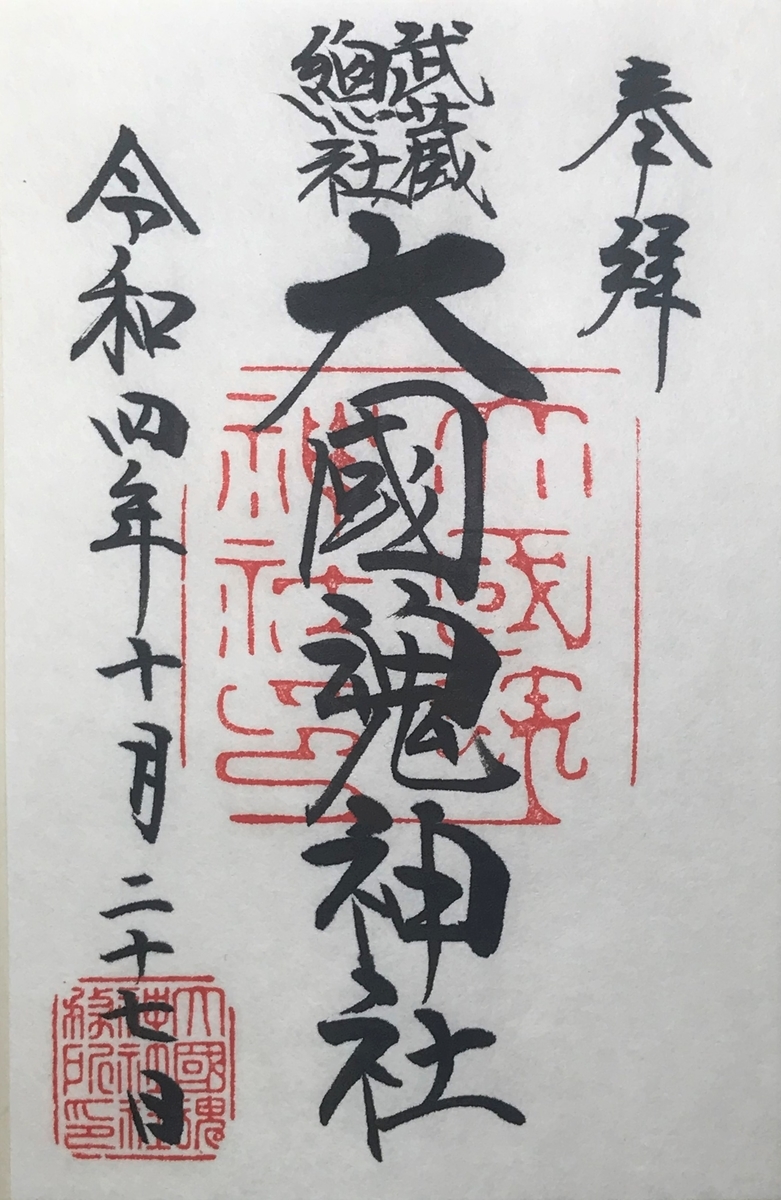 奉拝
武蔵
総社
大國魂神社
令和四年十月二十七日
大國魂
神社印
大國魂
神社社
務所印